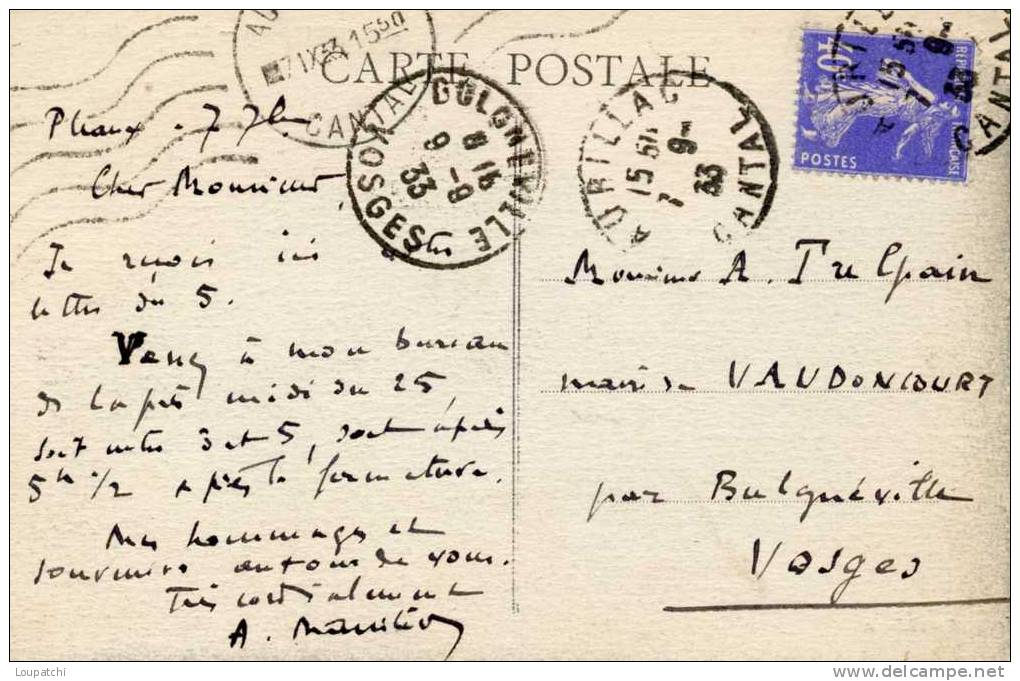 CARTE POSTALE
AURILLAC
CANTAL
7 IX 33 15 50
BULGNEVILLE
8 15
9 -9
33
VOSGES
AURILLAC
15 50
7 9
33
CANTAL
40
POSTES
Cher Monsieur,
Je reçois ici votre
lettre du 5.
Venez à mon bureau
de l'après midi du 25,
soit entre 3 et 5, soit après
5h 1/2 après la fermeture.
Mes hommages et
souvenirs autour de vous.
Très cordialement
A.
Monsieur A. Trelpain
maire de VAUDONCOURT
par Bulgnéville
Vosges
Loupatchi
www.delcampe.net